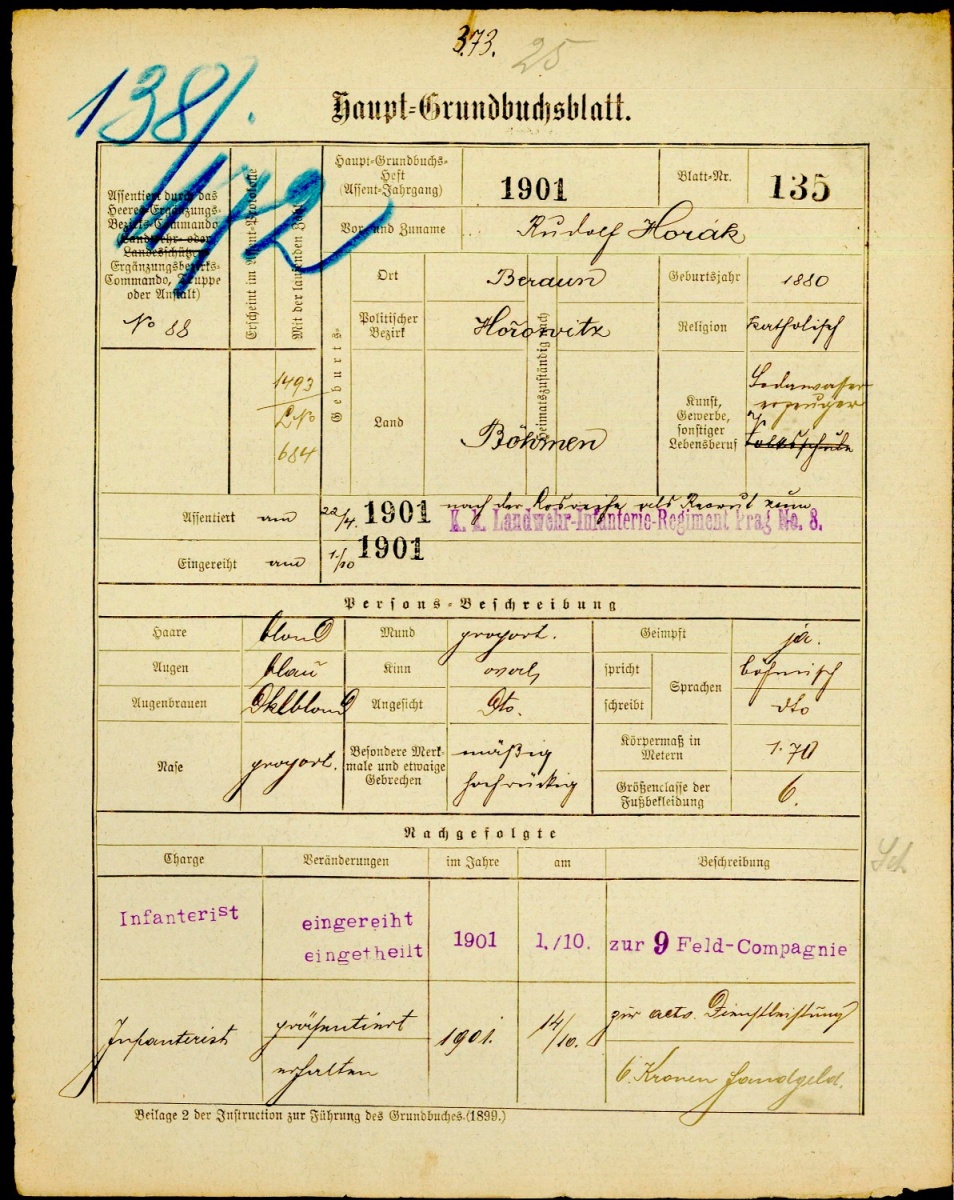 373.
25
138/.
172
Haupt-Grundbuchsblatt.
Assentiert durch das
Heeres-Ergänzungs-
Bezirks-Commando
Landwehr- oder
Landesschützen-
Ergänzungsbezirks-
Commando, Truppe
oder Anstalt)
No 88
Erscheint im Assent-Protokolle
Mit der laufenden Zahl
1493
LNo
684
Haupt-Grundbuchs-
Heft
(Assent-Jahrgang)
1901
Blatt-Nr.
135
Vor- und Zuname
Rudolf Horák
Geburts-
Ort
Beraun
Politischer
Bezirk
Hořowitz
Land
Böhmen
heimatszuständig auch
Geburtsjahr
1880
Religion
katholisch
Kunst,
Gewerbe,
sonstiger
Lebensberuf
Sodawasser
erzeuger
Volksschule
Assentiert am 22/4. 1901 nach der Losreihe als Recrut zum
K. k. Landwehr-Infanterie-Regiment Prag No. 8.
Eingereiht am 1./10 1901
Persons-Beschreibung
Haare blond Mund proport. Geimpft ja.
Augen blau Kinn oval spricht Sprachen böhmisch
Augenbrauen Dklblond Angesicht Dto. schreibt dto
Nase proport. Besondere Merk-
male und etwaige
Gebrechen
mäßig
hochrückig
Körpermaß in
Metern
1.70
Größenclasse der
Fußbekleidung
6.
Nachgefolgte
Charge Veränderungen im Jahre am Beschreibung
Sch
Infanterist eingereiht
eingetheilt 1901 1./10. zur 9 Feld-Compagnie
Infanterist präsentiert 1901. 14/10. zur activ. Dienstleistung
erhalten 6 Kronen Handgeld.
Beilage 2 der Instruction zur Führung des Grundbuches.(1899.)